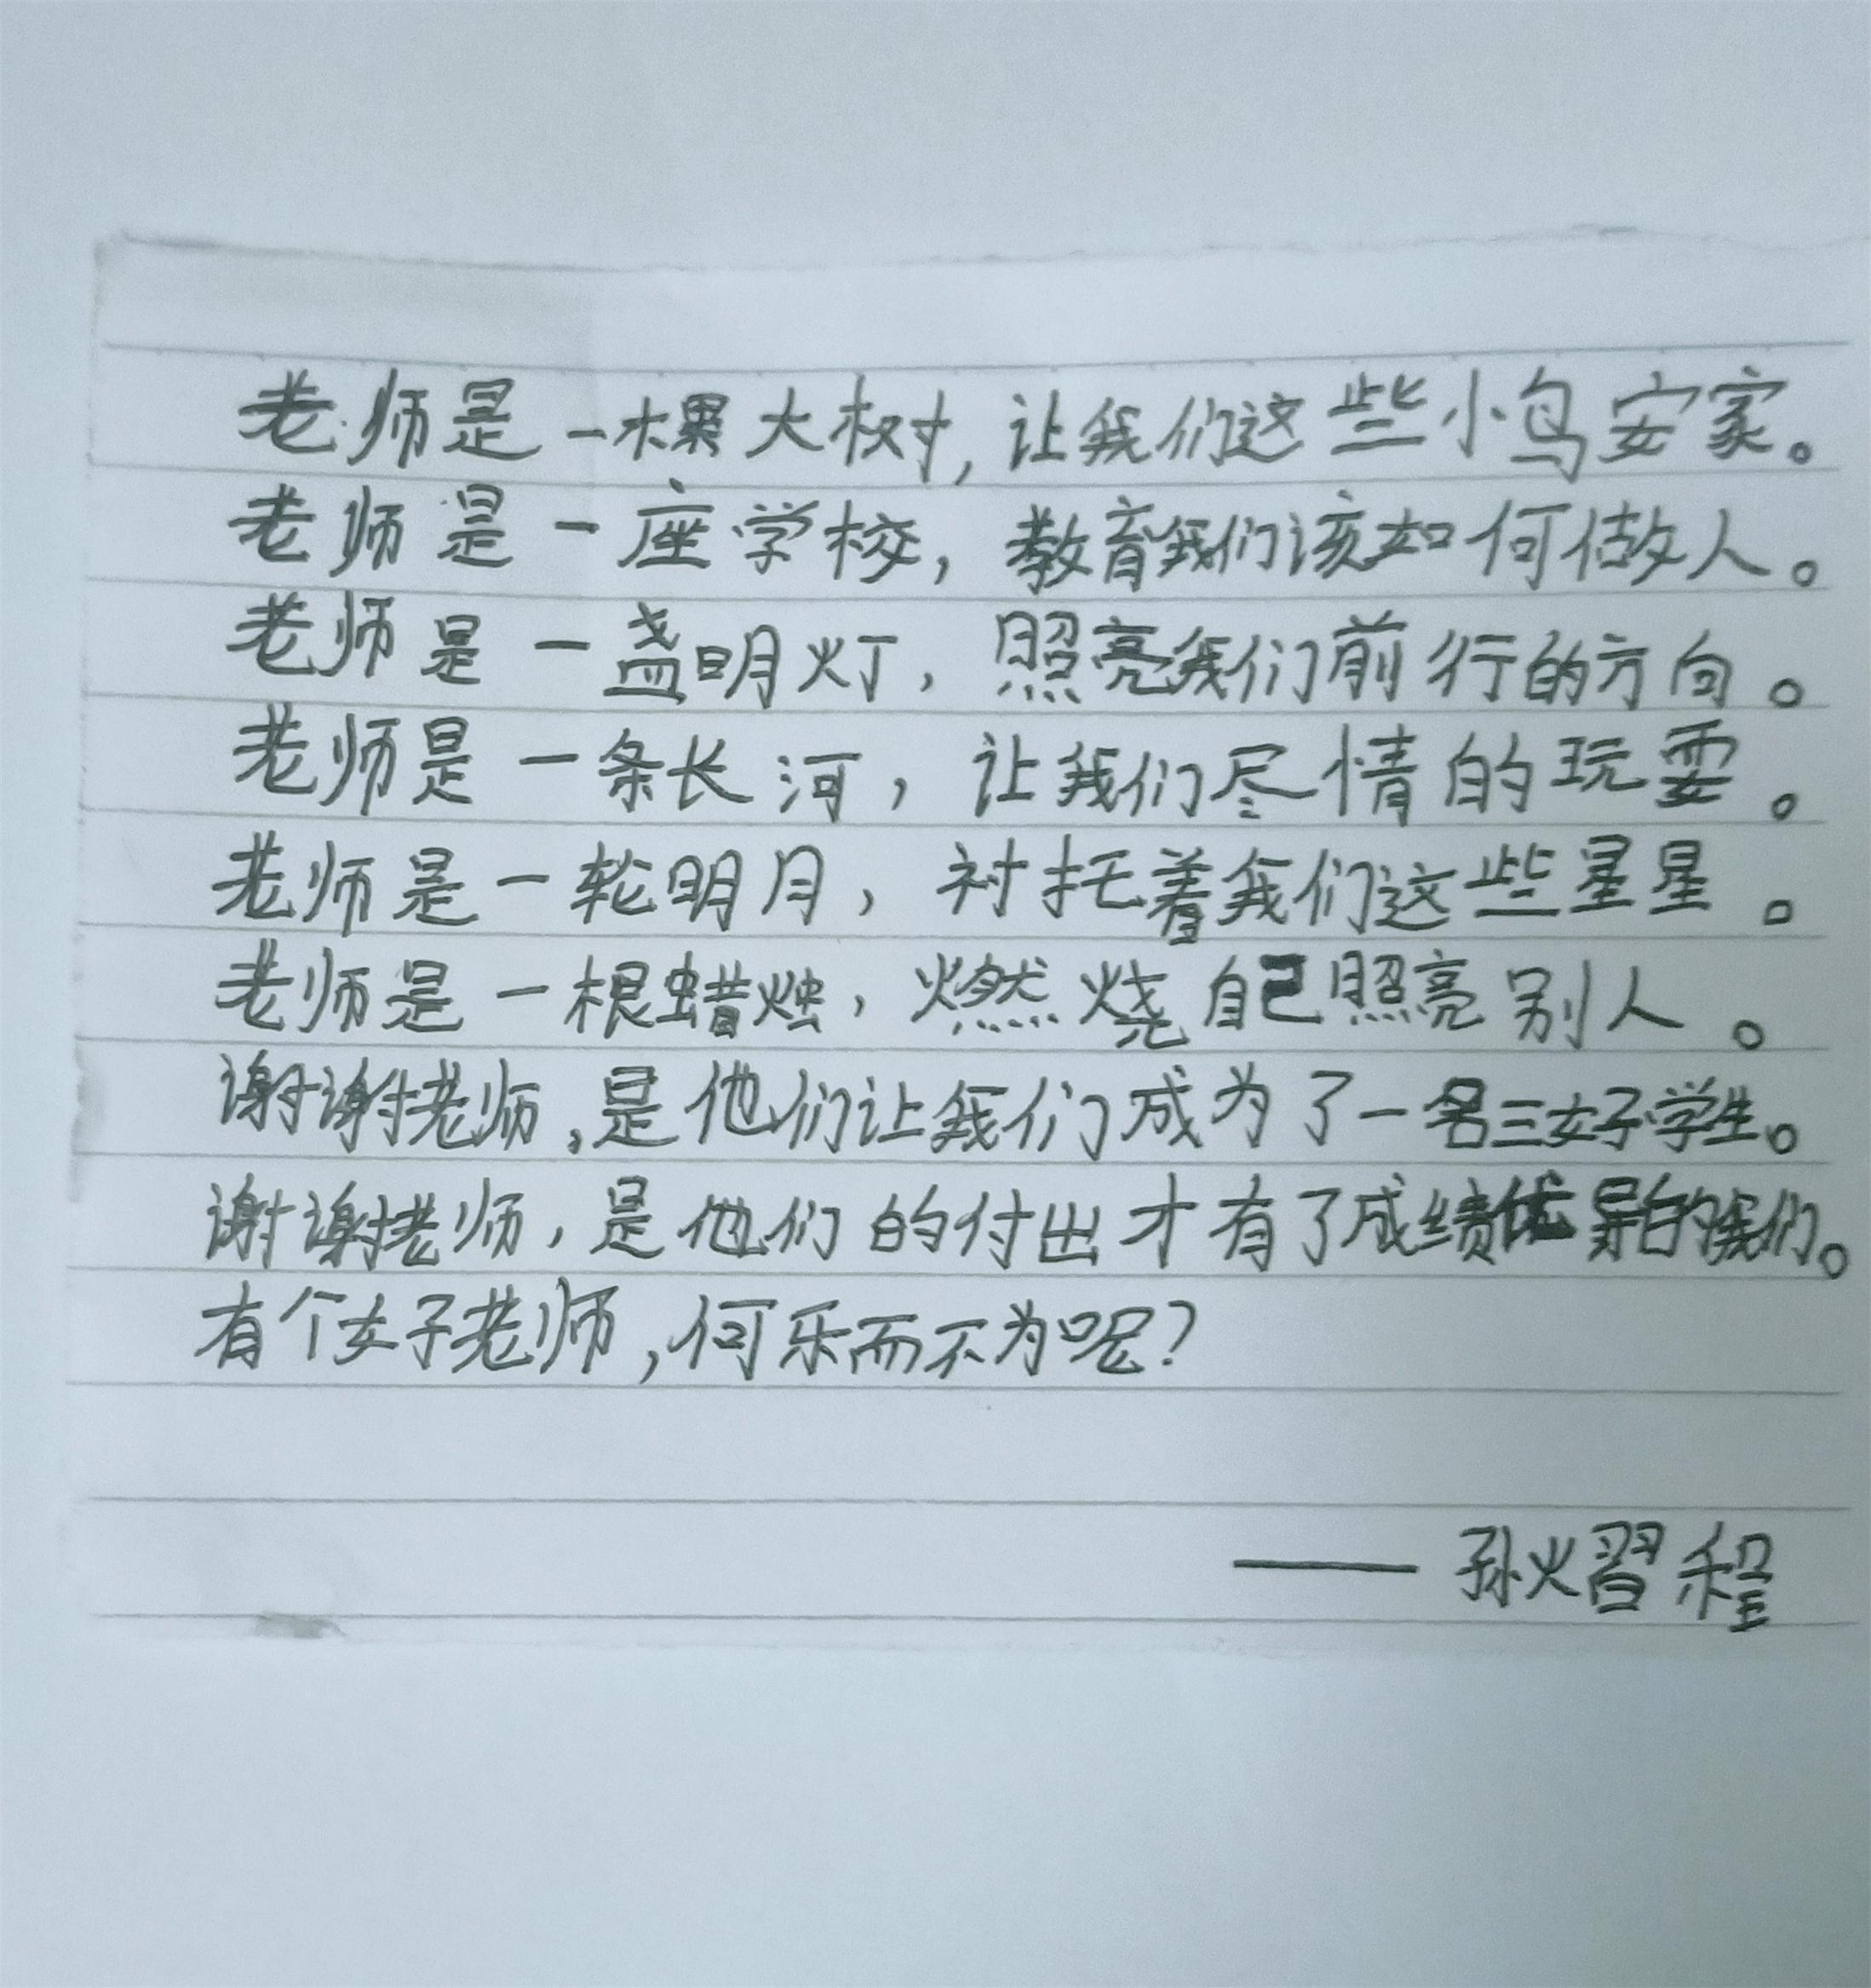 老师是一棵大树,让我们这些小鸟安家。
老师是一座学校,教育我们该如何做人。
老师是一盏明灯,照亮我们前行的方向。
老师是一条长河,让我们尽情的玩耍。
老师是一轮明月,衬托着我们这些星星。
老师是一根蜡烛,燃烧自己照亮别人。
谢谢老师,是他们让我们成为了一名三好学生。
谢谢老师,是他们的付出才有了成绩优异的我们。
有个好老师,何乐而不为呢?
——孙熠程